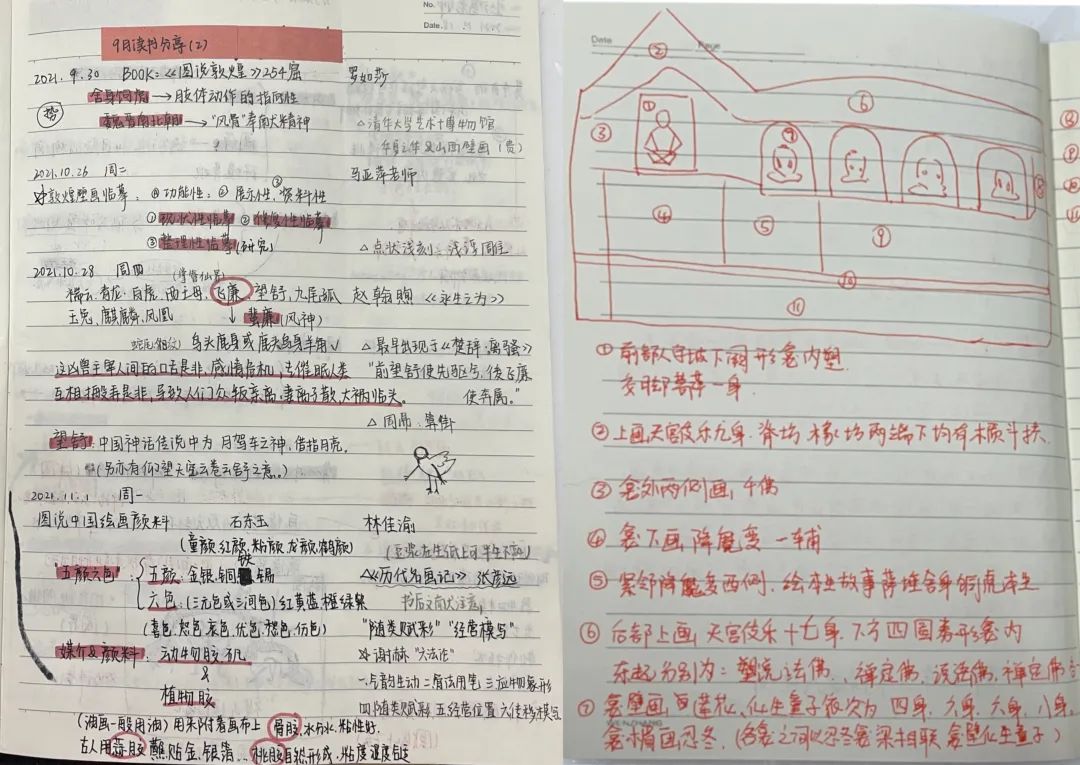 No.
Date.
9月读书分享(2)
2021.9.30 BOOK:《图说敦煌》254窟 罗如莎
舍身饲虎→肢体动作的指向性
势
魏晋南北朝→"风骨"秦南大精神 △清华大学艺术博物馆
山西壁画(贵)
2021.10.26 周二 马亚萍老师
敦煌壁画临摹: 功能性: 展示性,资料性
①现状性临摹 ②修复性临摹
③整理性临摹(研究) △点状浅刻,浅浮周主
2021.10.28 周四
瑞云,青龙,白虎,西王母,飞廉,望舒,九尾狐 赵翰卿 《永生之为》
玉兔,麒麟,凤凰 ↓蜚廉(风神)
鸟头鹿身或鹿头鸟身羊角 △最早出现于《楚辞·离骚》
这凶兽主宰人间的口舌是非,感情危机,去催眠人类 "前望舒使先驱兮,后飞廉
互相搬弄是非,导致人们众叛亲离,妻离子散,大祸临头。 使奔属。"
△周昂 算卦
望舒:中国神话传说中为月驾车之神,借指月亮。
(另亦有仰望天空云卷云舒之意。)
2021.11.1 周一
图说中国绘画颜料 石东玉 林佳渝
(童颜,红颜,粉颜,龙颜,鹤颜)
"五颜六色": 五颜:金银铜铁锡 △《历代名画记》张彦远
六色:(三元色或三间色)红黄蓝橙绿紫
(喜色,怒色,哀色,忧色,愁色,伤色) "随类赋彩" "经营模写"
媒介&颜料: 动物胶,矾 ☆谢赫"六法论"
& 一.气韵生动 二.骨法用笔 三.应物象形
植物胶 四.随类赋彩 五.经营位置 六.传移模写
(油画一般用油)用来附着画布上 骨胶,水分少,粘性好.
古人用蒜胶 蘸贴金,银箔 桃胶自然形成,粘度湿度合适
Date Page
② ① ③ ⑥ ④ ⑤ ⑨ ⑩ ⑪
①前部人字坡下阙形龛内塑
交脚菩萨一身.
②上画天宫伎乐九身.脊坊.椽坊两端下均有木质斗拱.
③龛外两侧画,千佛
④龛下画降魔变一铺
⑤紧邻降魔变西侧,绘本生故事萨埵舍身饲虎本生
⑥后部上画天宫伎乐十七身.下方四圆券形龛内
东起分别为:塑说法佛.禅定佛.说法佛.禅定佛
⑦龛壁画 莲花,化生童子依次为四身.六身.六身.八身.
龛楣画忍冬.(各龛之间以忍冬龛梁相联 龛壁化生童子)